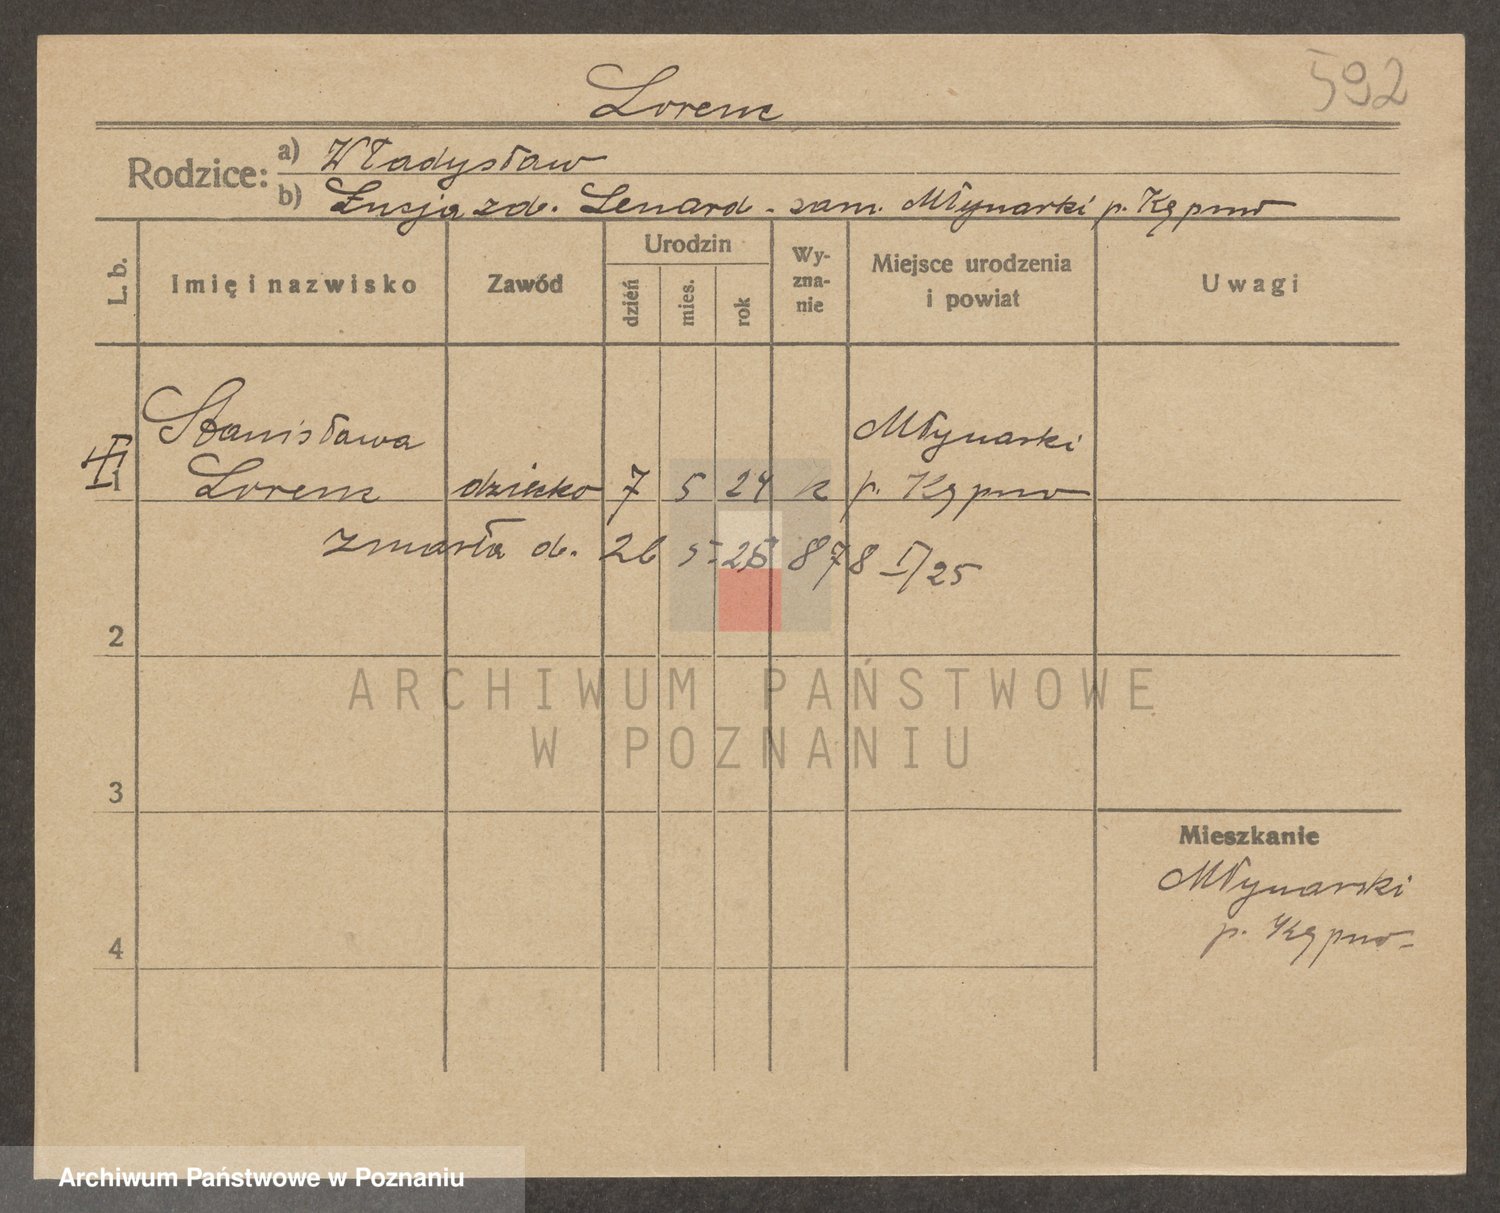 592
Lorenc
Rodzice: a) Władysław
b) Łucja zd. Lenard - zam. Młynarki p. Kępno
L. b. Imię i nazwisko Zawód Urodzin dzień mies. rok Wy-zna-nie Miejsce urodzenia i powiat Uwagi
Stanisława Młynarski
1 Lorenc dziecko 7 5 24 k p. Kępno
zmarła d. 26 5. 25 878 II/25
2
ARCHIWUM PAŃSTWOWE
W POZNANIU
3
Mieszkanie
Młynarski
4 p. Kępno
Archiwum Państwowe w Poznaniu